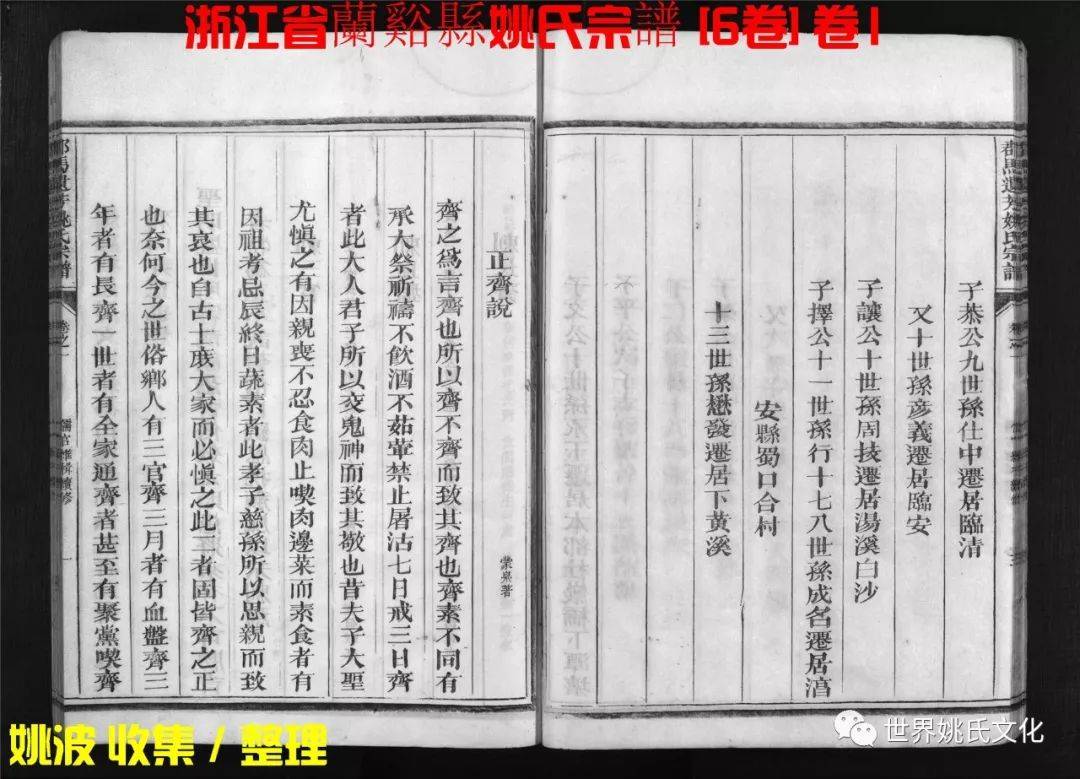 浙江省蘭谿縣姚氏宗譜 [6卷] 卷1
姚氏宗譜
子恭公九世孫仕中遷居臨清
又十世孫彦義遷居臨安
子讓公十世孫周技遷居湯溪白沙
子擇公十一世孫行十七八世孫成名遷居湻
安縣蜀口合村
十三世孫懋發遷居下黃溪
正齊說
棠泉著
齊之爲言齊也所以齊不齊而致其齊也齊素不同有
承大祭祈禱不飲酒不茹葷禁止屠沽七日戒三日齊
者此大人君子所以交鬼神而致其敬也昔夫子大聖
尤慎之有因親喪不忍食肉止喫肉邊菜而素食者有
因祖考忌辰終日蔬素者此孝子慈孫所以思親而致
其哀也自古士庻大家而必慎之此三者固皆齊之正
也奈何今之世俗鄉人有三官齊三月者有血盤齊三
年者有長齊一世者有全家通齊者甚至有聚黨喫齊
姚氏宗譜
卷之一
一
姚波 收集 / 整理
世界姚氏文化